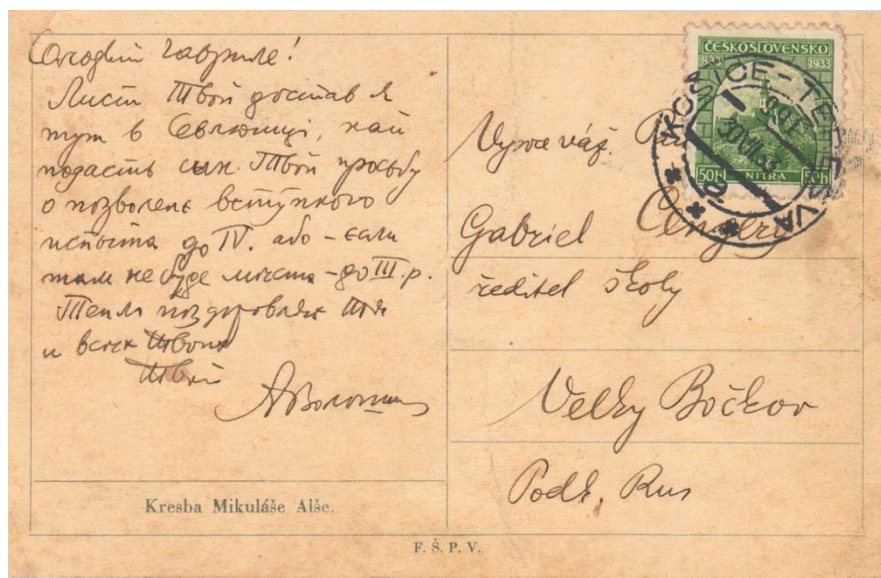 Солодкий Гавриле!
Лист Твой достав я
тут в Севлюши, най
подасть сын Твой просьбу
о позволенє вступного
испыта до IV. або – если
там не буде мѣста – до III. р.
Тепло поздоровляє Тя
и всѣх Твоих
Твой
АВолошин
Kresba Mikuláše Alše.
F. Š. P. V.
ČESKOSLOVENSKO
833 1933
50h NITRA 50h
KOŠICE – TEREŠVA
30.VII.33
Vysoce váž. Pan
Gabriel
ředitel školy
Velky Bočkov
Podk. Rus